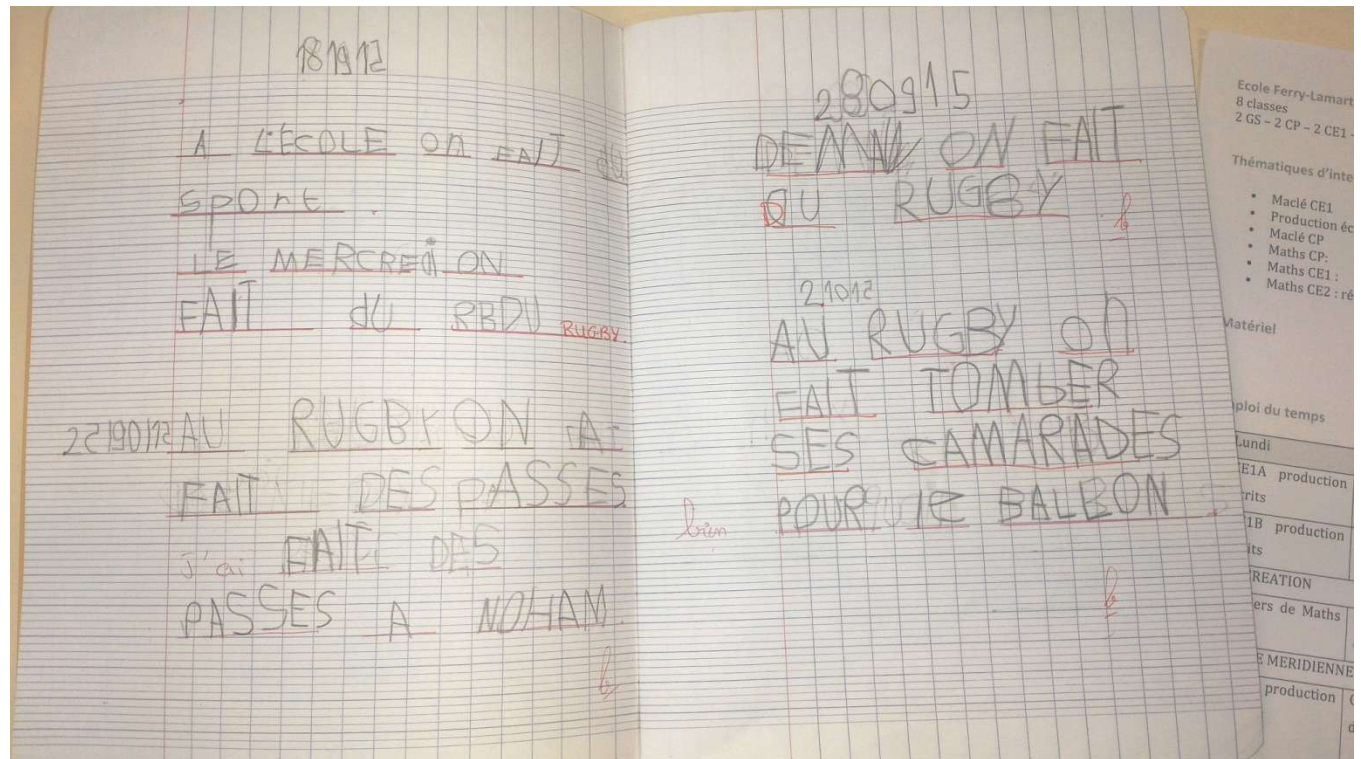 181912
A L'ÉCOLE on FAIT dU
sport.
LE MERCREdi ON
FAIT dU RBDU RUGBY.
22190112 AU RUGBY ON FAI
FAIT DES PASSES
j'ai FAITE DES
PASSES A NOHAM.
b
280915
DEMAIN ON FAIT
DU RUGBY.
b
21012
AU RUGBY on
FAIT TOMbER
SES CAMARADES
bien POUR lE BALLON
b
Ecole Ferry-Lamart
8 classes
2 GS – 2 CP – 2 CE1 -
Thématiques d'inte
• Maclé CE1
• Production éc
• Maclé CP
• Maths CP:
• Maths CE1 :
• Maths CE2 : ré
Matériel
ploi du temps
Lundi
E1A production
rits
1B production
its
REATION
ers de Maths
E MERIDIENNE
production